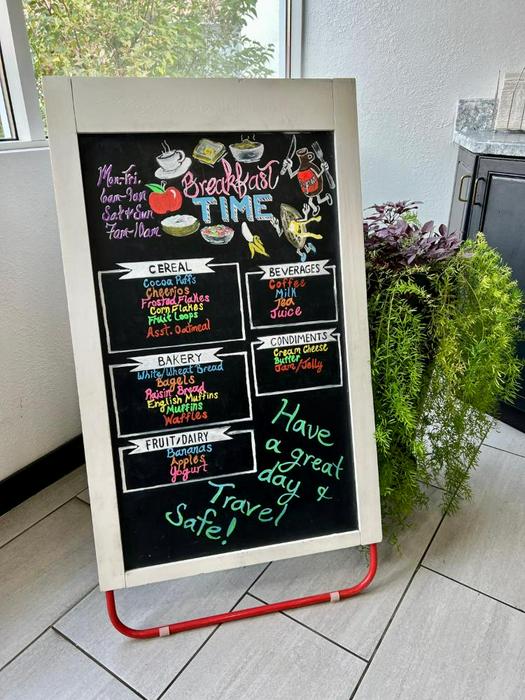 Mon-Fri.
6am-9am
Sat & Sun
7am-10am
Breakfast
TIME
CEREAL
Cocoa Puffs
Cheerios
Frosted Flakes
Corn Flakes
Fruit Loops
Asst. Oatmeal
BAKERY
White/Wheat Bread
Bagels
Raisin Bread
English Muffins
Muffins
Waffles
FRUIT/DAIRY
Bananas
Apples
Yogurt
BEVERAGES
Coffee
Milk
Tea
Juice
CONDIMENTS
Cream Cheese
Butter
Jam/Jelly
Have
a great
day &
Travel
Safe!